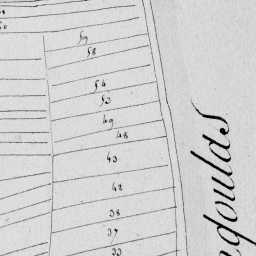 59
58
54
53
49
48
43
42
38
37
33
goulas